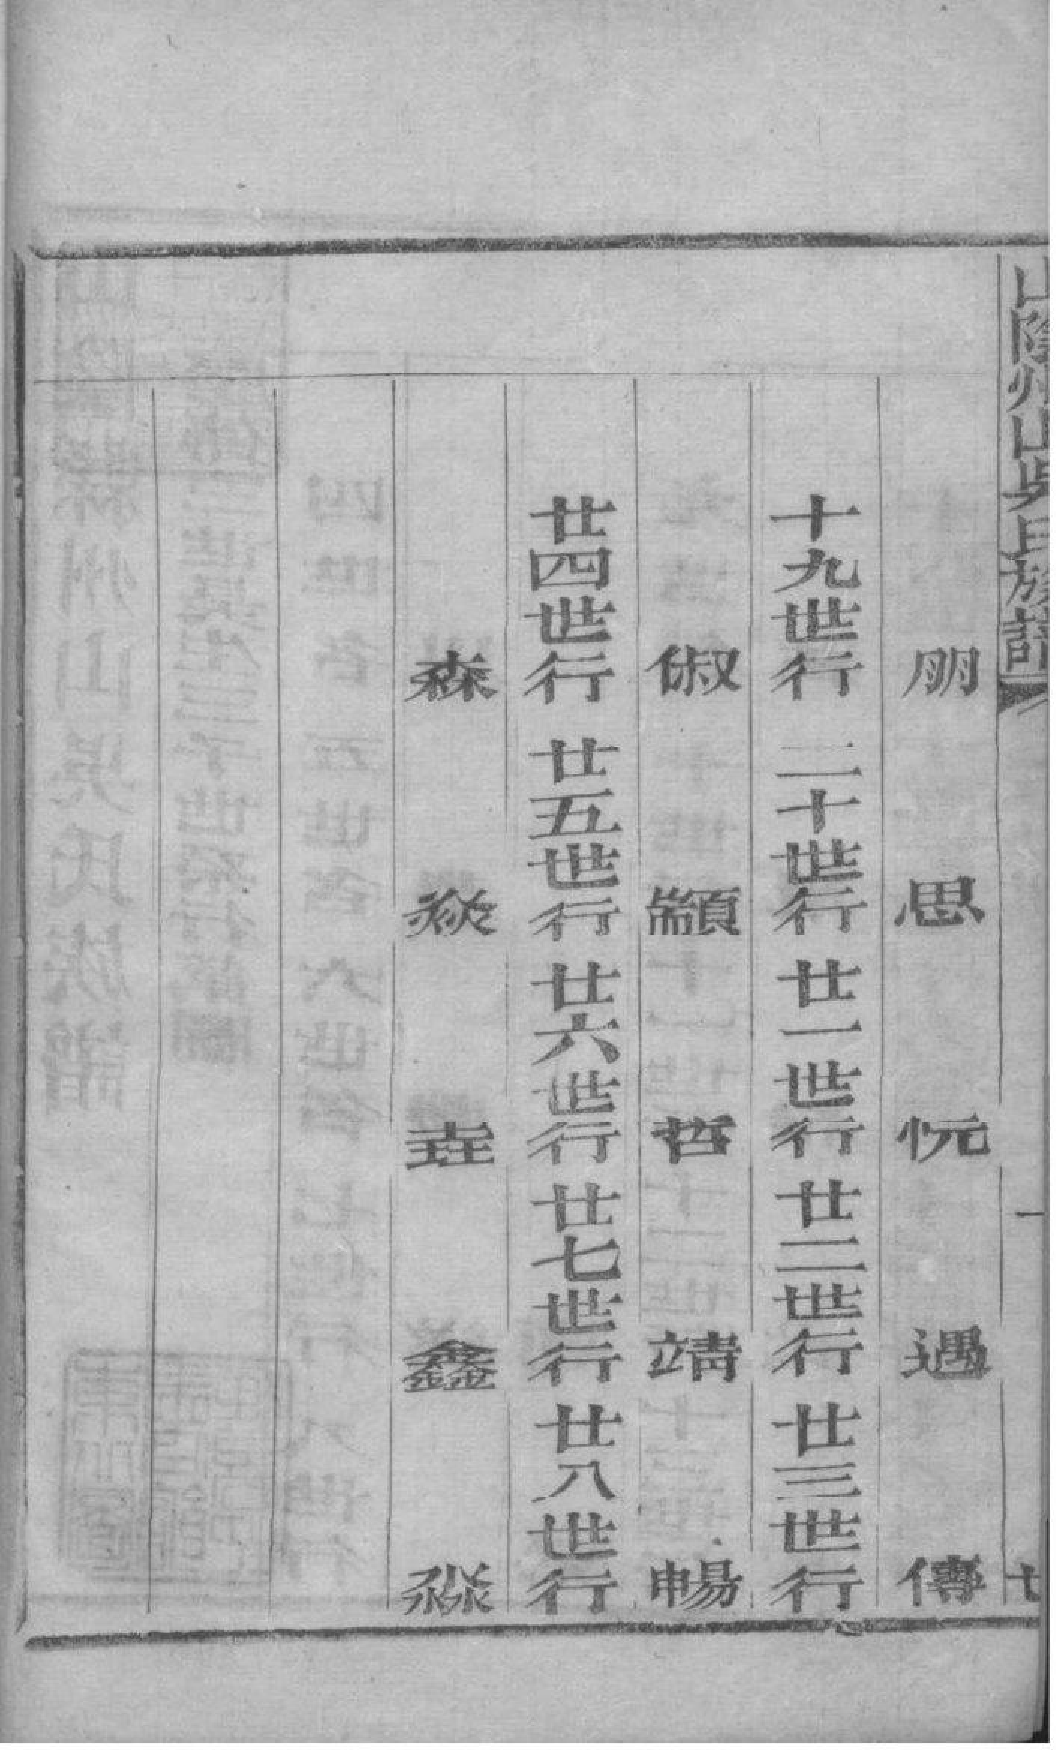 山陰州山吳氏族譜
朋 思 忨 遇 傳
十九世行 二十世行 廿一世行 廿二世行 廿三世行
俶 顓 哲 靖 暢
廿四世行 廿五世行 廿六世行 廿七世行 廿八世行
森 燚 垚 鑫 淼